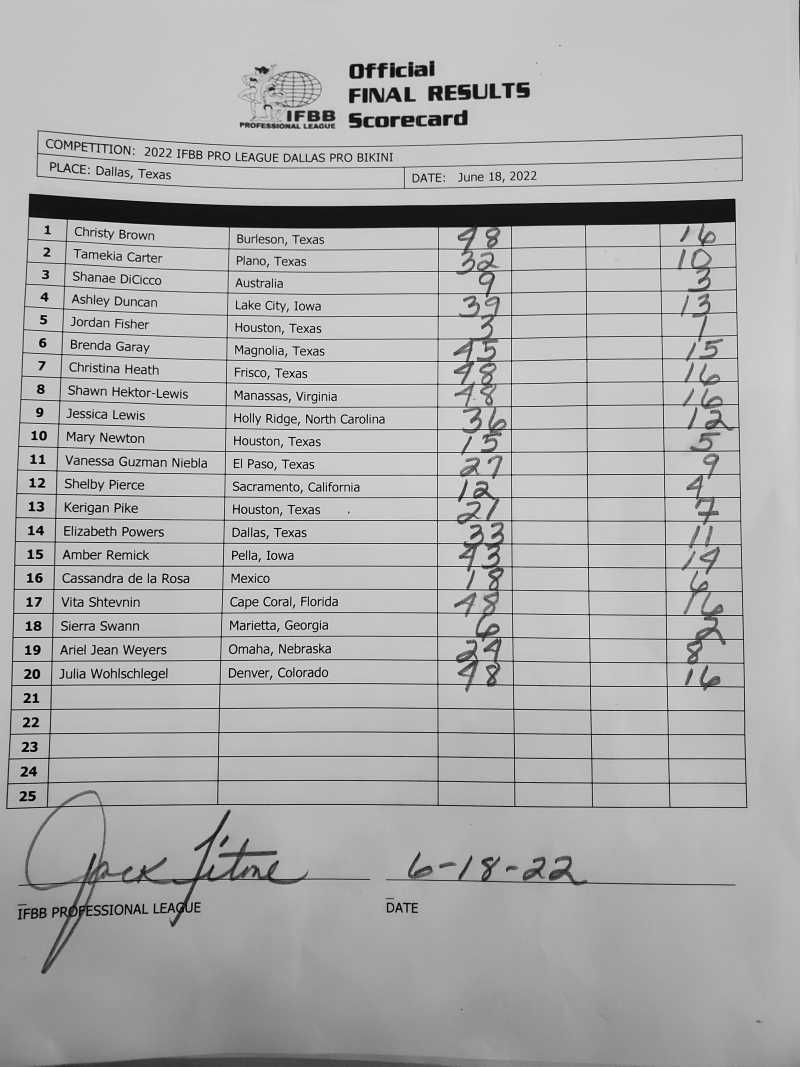 IFBB
PROFESSIONAL LEAGUE
Official
FINAL RESULTS
Scorecard
COMPETITION: 2022 IFBB PRO LEAGUE DALLAS PRO BIKINI
PLACE: Dallas, Texas
DATE: June 18, 2022
1 Christy Brown Burleson, Texas 48 16
2 Tamekia Carter Plano, Texas 32 10
3 Shanae DiCicco Australia 9 3
4 Ashley Duncan Lake City, Iowa 39 13
5 Jordan Fisher Houston, Texas 3 1
6 Brenda Garay Magnolia, Texas 45 15
7 Christina Heath Frisco, Texas 48 16
8 Shawn Hektor-Lewis Manassas, Virginia 48 16
9 Jessica Lewis Holly Ridge, North Carolina 36 12
10 Mary Newton Houston, Texas 15 5
11 Vanessa Guzman Niebla El Paso, Texas 27 9
12 Shelby Pierce Sacramento, California 12 4
13 Kerigan Pike Houston, Texas 21 7
14 Elizabeth Powers Dallas, Texas 33 11
15 Amber Remick Pella, Iowa 43 14
16 Cassandra de la Rosa Mexico 18 6
17 Vita Shtevnin Cape Coral, Florida 48 16
18 Sierra Swann Marietta, Georgia 6 2
19 Ariel Jean Weyers Omaha, Nebraska 24 8
20 Julia Wohlschlegel Denver, Colorado 48 16
21
22
23
24
25
Jack Titone 6-18-22
IFBB PROFESSIONAL LEAGUE
DATE